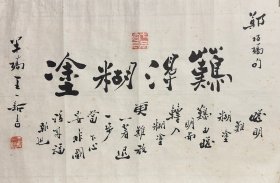 鄭板橋句
難得糊塗
聰明
難
糊塗
難由聰
明而
轉入
糊塗
更難放
一著退
一步
當下心
安非圖
報也